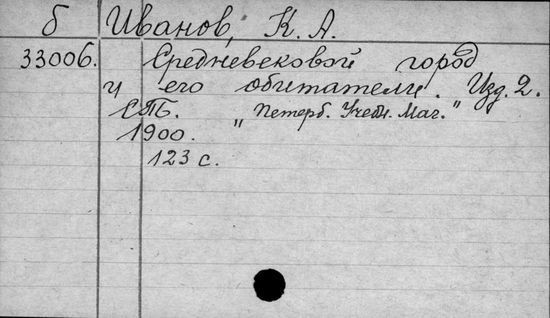 б Иванов, К. А.
33006. Средневековой город
и его обитатели. Изд. 2.
СПб. „Петерб. Учебн. Маг."
1900.
123 с.